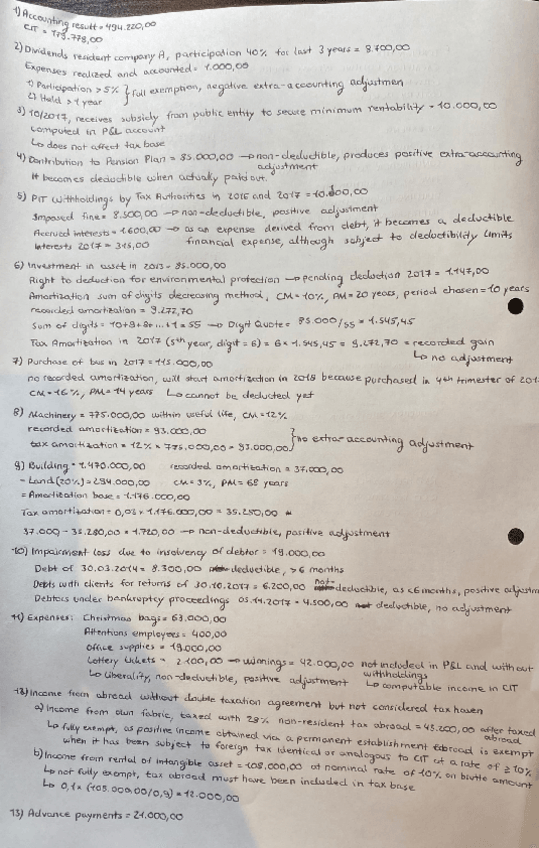 1) Accounting result = 494.220,00
CIT = 179.778,00
2) Dividends resident company A, participation 40% for last 3 years = 8.700,00
Expenses realized and accounted = 1.000,00
1) Participation > 5% } full exemption, negative extra-accounting adjustmen
2) Held > 1 year
3) 10/2017, receives subsidy from public entity to secure minimum rentability = 10.000,00
computed in P&L account
↳ does not affect tax base
4) Contribution to Pension Plan = 85.000,00 → non-deductible, produces positive extra-accounting
adjustment
it becomes deductible when actually paid out.
5) PIT withholdings by Tax Authorities in 2016 and 2017 =
Imposed fine = 8.500,00 → non-deductible, positive adjustment
Accrued interests = 1.600,00 → as an expense derived from debt, it becomes a deductible
Interests 2017 = 315,00 financial expense, although subject to deductibility limits
6) Investment in asset in 2013 = 85.000,00
Right to deduction for environmental protection → pending deduction 2017 = 1.147,00
Amortization sum of digits decreasing method, CM = 10%, PM = 20 years, period chosen = 10 years
recorded amortization = 9.272,70
Sum of digits = 10+9+8+...+1 = 55 → Digit Quote = 85.000/55 = 1.545,45
Tax Amortization in 2017 (5th year, digit = 6) = 6 x 1.545,45 = 9.272,70 = recorded gain
↳ no adjustment
7) Purchase of bus in 2017 = 115.000,00
no recorded amortization, will start amortization in 2018 because purchased in 4th trimester of 201
CM = 16%, PM = 14 years ↳ cannot be deducted yet
8) Machinery = 775.000,00 within useful life, CM = 12%
recorded amortization = 93.000,00
tax amortization = 12% x 775.000,00 = 93.000,00 } no extra-accounting adjustment
9) Building = 1.470.000,00 recorded amortization = 37.000,00
- Land (20%) = 294.000,00 CM = 3%, PM = 68 years
= Amortization base = 1.176.000,00
Tax amortization = 0,03 x 1.176.000,00 = 35.280,00
37.000 - 35.280,00 = 1.720,00 → non-deductible, positive adjustment
10) Impairment loss due to insolvency of debtor = 19.000,00
Debt of 30.03.2014 = 8.300,00 deductible, > 6 months
Debts with clients for returns of 30.10.2017 = 6.200,00 not deductible, as < 6 months, positive adjustm
Debtors under bankruptcy proceedings 05.11.2017 = 4.500,00 deductible, no adjustment
11) Expenses: Christmas bags = 63.000,00
Attentions employees = 400,00
Office supplies = 19.000,00
Lottery tickets = 2.100,00 → winnings = 42.000,00 not included in P&L and without
withholdings
↳ liberality, non-deductible, positive adjustment ↳ computable income in CIT
12) Income from abroad without double taxation agreement but not considered tax haven
a) Income from own fabric, taxed with 28% non-resident tax abroad = 43.200,00 after taxed
abroad
↳ fully exempt, as positive income obtained via a permanent establishment abroad is exempt
when it has been subject to foreign tax identical or analogous to CIT at a rate of ≥ 10%
b) Income from rental of intangible asset = 108.000,00 at nominal rate of 10% on brutto amount
↳ not fully exempt, tax abroad must have been included in tax base
↳ 0,1 x (108.000,00/0,9) = 12.000,00
13) Advance payments = 21.000,00